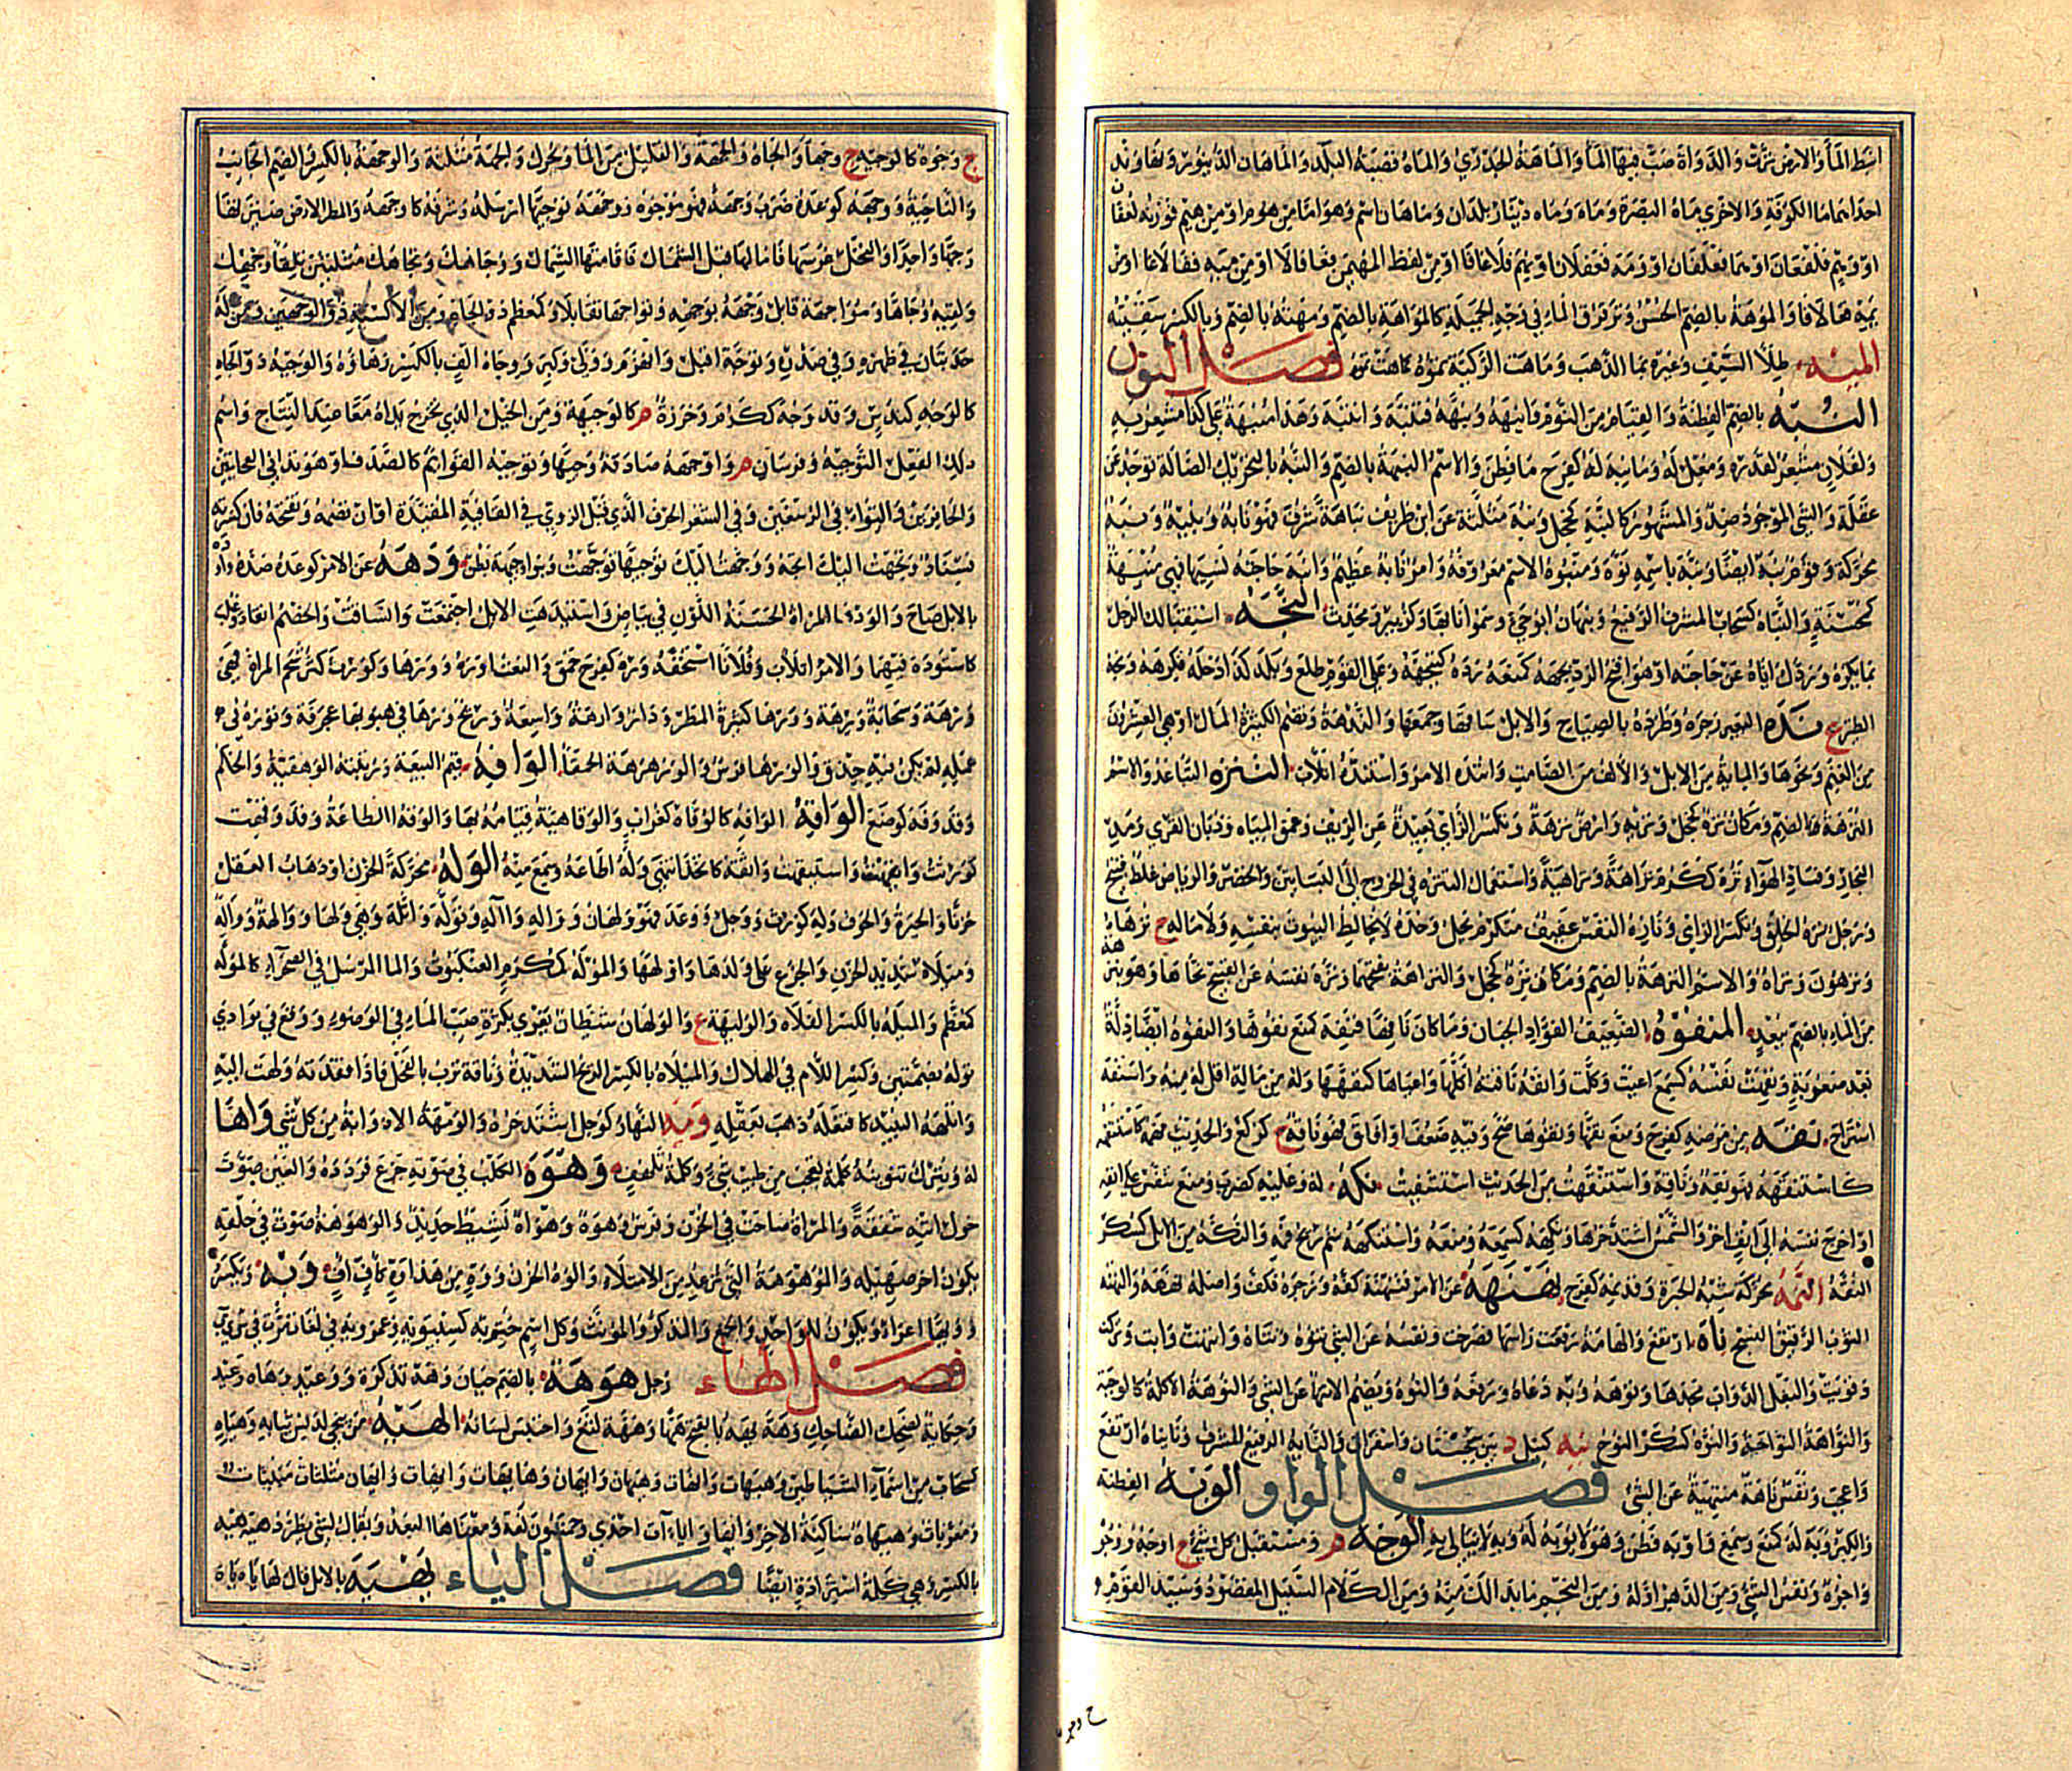 انبط الماء والارض نزت والدواة صب فيها الماء والماهة الجدري والماه قصبة البلد والماهان الدينور ونهاوند
احداهما ماه الكوفة والاخرى ماه البصرة وماه وماه دينار بلدان وماهان اسم وهو اما من هوم او من هيم فوزنه لعفان
او وهم فلفعان او همى فعلفان او ومه فعفلان او نهم فلاعافا او من لفظ المهيمن فعافالا او من منهه ففالاعا او من
نمه فعالافا والموهة بالضم الحسن وترقرق الماء في وجه الجميلة كالمواهة بالضم ومهته بالضم وبالكسر سقيته
الميه طلاء السيف وغيره بماء الذهب وماهت الركية تموه كماهت تميه فصل النون
النبه بالضم الفطنة والقيام من النوم وانبهه ونبهه فتنبه وانتبه وهذا منبهة على كذا مشعر به
ولفلان مشعر لقدره ومعل له وما نبه له كفرح ما فطن والاسم النبه بالضم والنبه بالتحريك الضالة توجد عن
غفلة والشئ الموجود ضد والمشهور كالنبه كخجل ونبه مثلثة عن ابن طريف نباهة شرف فهو نابه ونبيه ونبه
محركة وقوم نبه ايضا ونبه باسمه نوه ومنبوه الاسم معروفه وامر نابه عظيم وانبه حاجته نسيها فهي منبهة
كمحسنة والنباه كسحاب المشرف الرفيع ونبهان ابو حي وسموا نابها وكزبير ومحدث النجه استقبالك الرجل
بما يكره وردك اياه عن حاجته او هو اقبح الرد نجهه كمنعه رده كنجهه وعلى القوم طلع وبلد كذا دخله فكرهه ونجه
الطير ع نده البعير زجره وطرده بالصياح والابل ساقها وجمعها والندهة وتضم الكثيرة المال او هي العشرون
من الغنم ونحوها والمائة من الابل والالف من الصامت وانتده الامر واستنده اتلأب التنزه التباعد والاسم
النزهة بالضم ومكان نزه كخجل ونزيه وارض نزهة وتكسر الزاي بعيدة عن الريف وغمق المياه وذبان القرى ومد
البحار وفساد الهواء نزه ككرم نزاهة ونزاهية واستعمال التنزه في الخروج الى البساتين والخضر والرياض غلط قبيح
ورجل نزه الخلق وتكسر الزاى ونازه النفس عفيف متكرم يحل وحده لا يخالط البيوت بنفسه ولا ماله ج نزهاء
ونزهون ونزاه والاسم النزهة بالضم ومكان نزه كخجل والنزاهة بفتحهما ونزه نفسه عن القبيح نحاها وهو بنزهة
من الماء بالضم ببعد المنفوه الضعيف الفؤاد الجبان وما كان نافها فنفه كمنع نفوها والنفوه ايضا ذلة
بعد صعوبة ونفهت نفسه كسمع اعيت وكلت وانفه ناقته اكلها واعياها كنفهها وله من ماله اقل له منه واستنفه
استراح نقه من مرضه كفرح ومنع نقها ونقوها صح وفيه ضعف او افاق فهو ناقه ج كركع والحديث فهمه كاستنقهه
كاستنقهه فهو نقه وناقه واستنقهت من الحديث استشفيت نكه له وعليه كضرب ومنع تنفس على انفه
او اخرج نفسه الى انف اخر والشمس اشتد حرها ونكهه كسمعه ومنعه واستنكهه شم ريح فمه والنكه من الابل كسكر
النقه النمه محركة شبه الحيرة وقد نمه كفرح نهنهه عن الامر فتنهنه كفه وزجره فكف واصله نههه والنهنه
الثوب الرقيق النسج ناه ارتفع والهامة رفعت راسها فصرخت ونفسه عن الشئ تنوه وتناه وانتهت وابت وتركت
وقويت والبقل الدواب مجدها ونوهه وبه دعاه ورفعه والنوه وتضم الانتها عن الشئ والنوهة الاكلة كالوجبة
والنواهة النواحة والنوه كسكر النوح نيه كبيل د بين سجستان واسفراين والنايه الرفيع المشرف وناه يناه ارتفع
واعجب ونفس ناهة منتهية عن الشئ فصل الواو الوبه الفطنة
والكبر وبه له كمنع وسمع وابه فطن وهو لا يوبه له وبه لا يبالى به الوجه م ومستقبل كل شئ ج اوجه ووجوه
واجوه ونفس الشئ ومن الدهر اوله ومن النجم ما بدا لك منه ومن الكلام السبيل المقصود وسيد القوم
ج وجوه كالوجيه ج وجهاء والجاه والجهة والقليل من الماء ويحرك والجهة مثلثة والوجهة بالكسر والضم الجانب
والناحية ووجهه كوعده ضرب وجهه فهو موجوه ووجهه توجيها ارسله وشرفه كاوجهه والمطر الارض صيرها
وجها واحدا والنخل غرسها فامالها قبل الشمال فاقامتها الشمال ووجاهك وتجاهك مثلثين تلقاء وجهك
ولقيه وجاها ومواجهة قابل وجهه بوجهه وتواجها تقابلا وكمعظم ذو الجاه ومن الاكسية ذو الوجهين ومن له
حدبتان في ظهره وفي صدره وتوجه اقبل وانهزم وولى وكبر ووجاه الف بالكسر زهاؤه والوجيه ذو الجاه
كالوجه كندس وقد وجه ككرم وخرزة م كالوجيهة ومن الخيل الذي تخرج يداه معا عند النتاج واسم
ذلك الفعل التوجيه وفرسان م واوجهه صادفه وجيها وتوجيه القوائم كالصدف او هو تداني العجايتين
والحافرين والتواء في الرسغين وفي الشعر الحرف الذي قبل الروي في القافية المقيدة او ان تضمه وتفتحه فان كسرته
فسناد وتجهت اليك اتجه ووجهت اليك توجيها توجهت وبنو وجيهة بطن ودهه عن الامر كوعده صده واوده
بالابل صاح والودهاء المراة الحسنة اللون في بياض واستيدهت الابل اجتمعت وانساقت والخصم انقاد وغلب
كاستودهت فيهما والامر اتلأب وفلانا استخفه وره كفرح حمق والنعت اوره وورهاء وكورث كثر شحم المراة فهي
ورهة وسحابة ورهة وورهاء كثيرة المطر ودار وارهة واسعة وريح ورهاء في هبوبها عجرفة وتوره في
عمله لم يكن فيه حذق والورهاء فرس والورهرهة الحمقاء الوافه قيم البيعة ورتبته الوفهية والحكم
وقد وفه كوضع الواقه الوافه كالوقاه كغراب والوقاهية قيامه بها والوقه الطاعة وقد وقهت
كورثت وايقهت واستيقهت واتقه كاتخذ انتهى وله اطاعه وسمع منه الوله محركة الحزن او ذهاب العقل
حزنا والحيرة والخوف وله كورث ووجل ووعد فهو ولهان وواله واله وتوله واتله وهي ولهى ووالهة وواله
وميلاه شديد الحزن والجزع على ولدها واولهها والموله كمكرم العنكبوت والماء المرسل في الصحراء كالموله
كمعظم والميله بالكسر الفلاة والوليهة ع والولهان شيطان يغري بكثرة صب الماء في الوضوء ووقع في وادي
توله بضمتين وكسر اللام في الهلاك والميلاه بالكسر الريح الشديدة وناقة ترب بالفحل فاذا فقدته ولهت اليه
واتلهه النبيذ كافتعله ذهب بعقله ومه النهار كوجل اشتد حره والومهة الاذوابة من كل شئ واها
له ويترك تنوينه كلمة تعجب من طيب شئ وكلمة تلهف وهوه الكلب في صوته جزع فردده والعير صوت
حول اتنه شفقة والمراة صاحت في الحزن وفرس وهوه وهواه نشيط حديد والوهوهة صوت في حلقه
يكون اخر صهيله والموهوهة التي ترعد من الامتلاء والوه الحزن وويه من هذا اوه كاف اف ويه وتكسر
وويها اغراء ويكون للواحد والجمع والمذكر والمونث وكل اسم ختم به كسيبويه وعمرويه في لغات
فصل الهاء رجل هوهة بالضم جبان وهه تذكرة ووعيد وهاه وعيد
وحكاية لضحك الضاحك وهه يهه بالفتح ههها وههة لثغ واحتبس لسانه الهيه من ينحى لدنس ثيابه وهياه
كسحاب من اسماء الشياطين وهيهات وايهات وهيهان وايهان وهايهات وايهات وايهان مثلثات مبنيات
ومعربات وهيهاه ساكنة الاخر وايها وايات احدى وخمسون لغة ومعناها البعد ويقال لشئ يطرد هيه هيه
بالكسر وهي كلمة استزادة ايضا فصل الياء يهيه بالابل قال لها ياه ياه